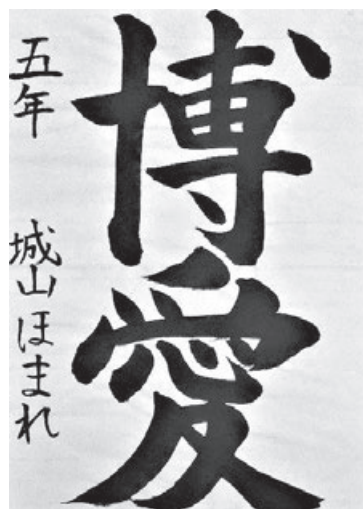 博愛
五年 城山ほまれ